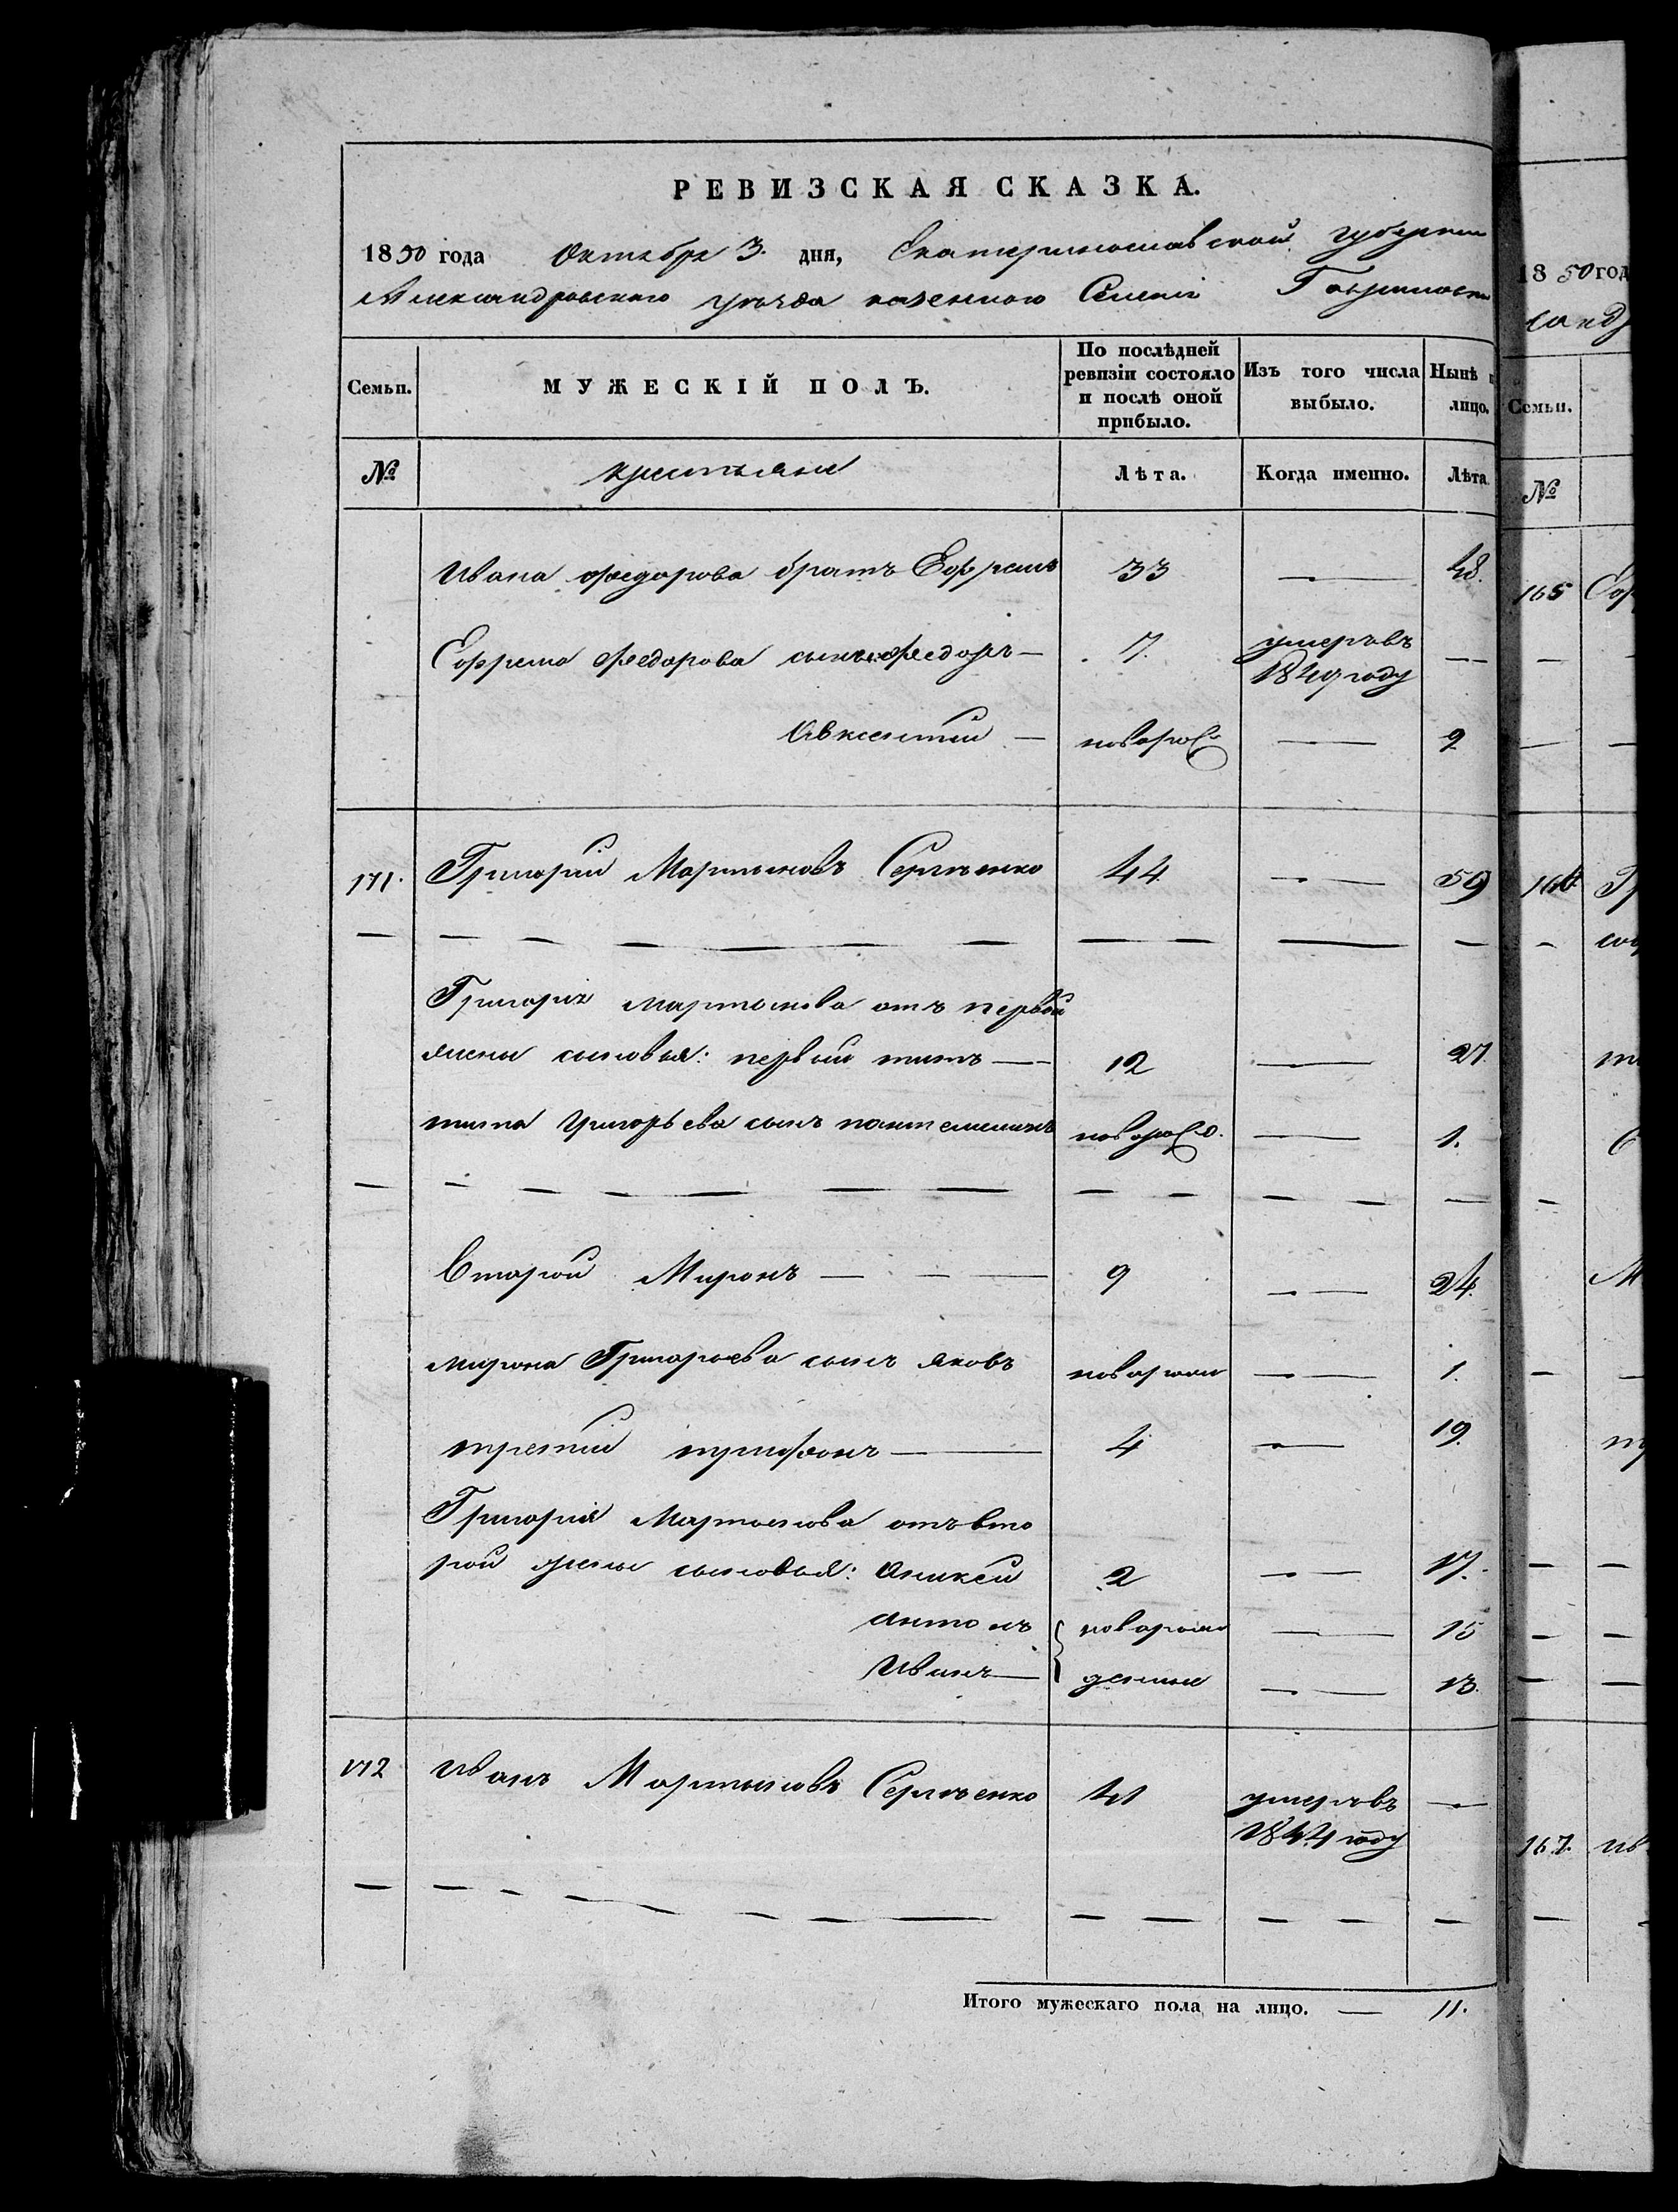 РЕВИЗСКАЯ СКАЗКА.
1850 года Октября 3. дня, Екатеринославской губернии
Александровскаго уѣзда казеннаго Селенія
Семьи. МУЖЕСКІЙ ПОЛЪ. По послѣдней ревизіи состояло и послѣ оной прибыло. Изъ того числа выбыло. Нынѣ лицо.
№ крестьяне Лѣта. Когда именно. Лѣта
Ивана Федорова братъ Ефремъ 33 — 48.
Ефрема Федорова сынъ Федоръ — 7. умеръ въ 1849 году —
Авксентий — новорож — 9
171. Григорий Мартыновъ Сергѣенко 44 — 59
Григорія Мартынова отъ первой
жены сыновья: первый титъ — 12 — 27.
тита Григорьева сынъ пантелимонъ новорож. — 1.
Второй Миронъ — 9 — 24.
мирона Григорьева сынъ яковъ новорож — 1.
третий трифонъ — 4 — 19.
Григорія Мартынова отъ вто
рой жены сыновья: Аникей 2 — 17.
антонъ новорож — 15
Иванъ — денные — 13.
172 Иванъ Мартыновъ Сергѣенко 41 умеръ въ —
1844 году
Итого мужескаго пола на лицо. — 11.
1850 год
Семьи.
№
165
166
167.